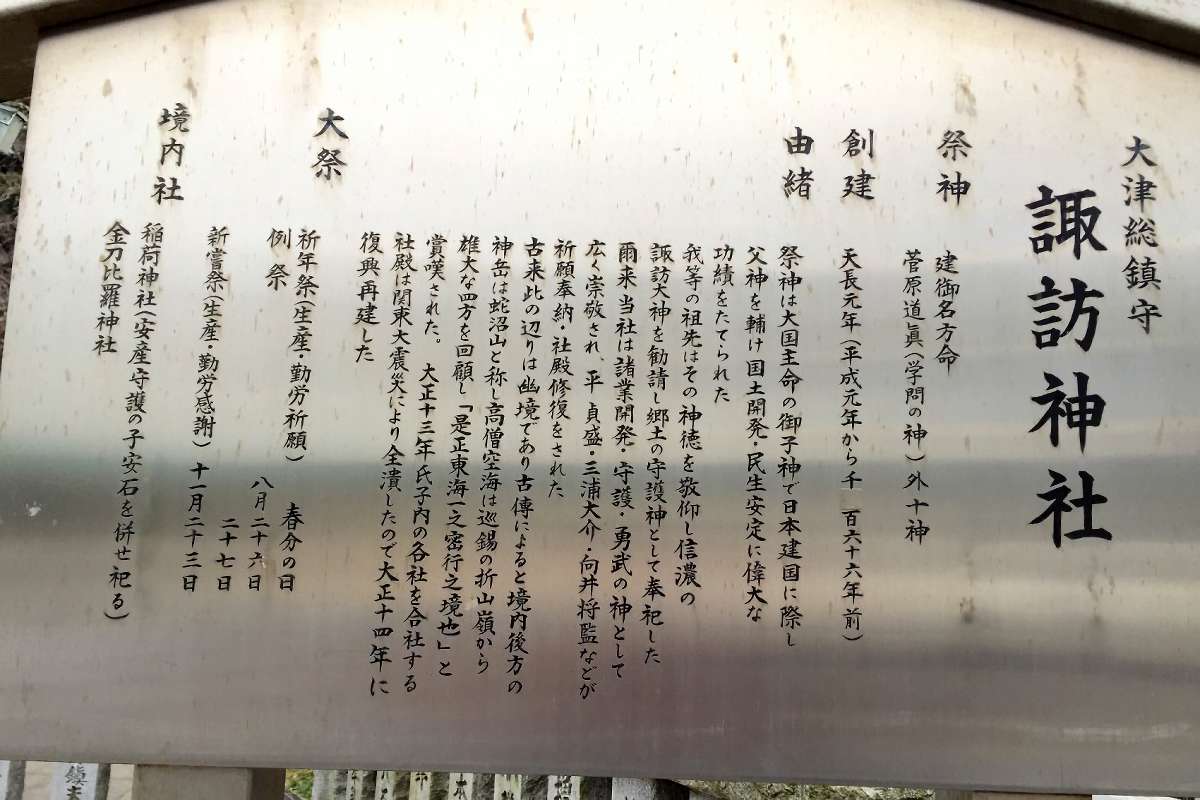 大津総鎮守
諏訪神社
祭神
建御名方命
菅原道眞(学問の神)外十神
創建
天長元年(平成元年から千一百六十六年前)
由緒
祭神は大国主命の御子神で日本建国に際し
父神を輔け国土開発・民生安定に偉大な
功績をたてられた
我等の祖先はその神徳を敬仰し信濃の
諏訪大神を勧請し郷土の守護神として奉祀した
爾来当社は諸業開発・守護・勇武の神として
広く崇敬され、平貞盛・三浦大介・向井将監などが
祈願奉納・社殿修復をされた
古来此の辺りは幽境であり古傳によると境内後方の
神岳は蛇沼山と称し高僧空海は巡錫の折山嶺から
雄大な四方を回顧し「是正東海一之密行之境也」と
賞嘆された。大正十三年氏子内の各社を合社する
社殿は関東大震災により全潰したので大正十四年に
復興再建した
大祭
祈年祭(生産・勤労祈願) 春分の日
例祭 八月二十六日
二十七日
新嘗祭(生産・勤労感謝) 十一月二十三日
境内社
稲荷神社(安産守護の子安石を併せ祀る)
金刀比羅神社